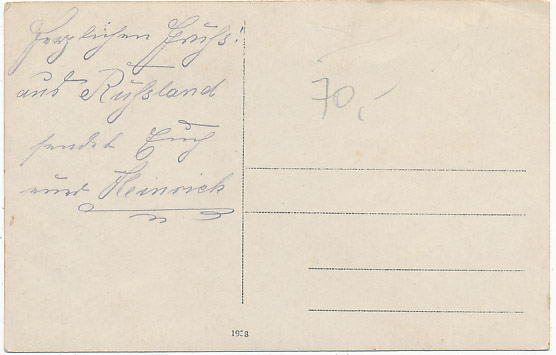 Herzlichen Gruß!
aus Russland
sendet Euch
euer Heinrich
70,-
1938